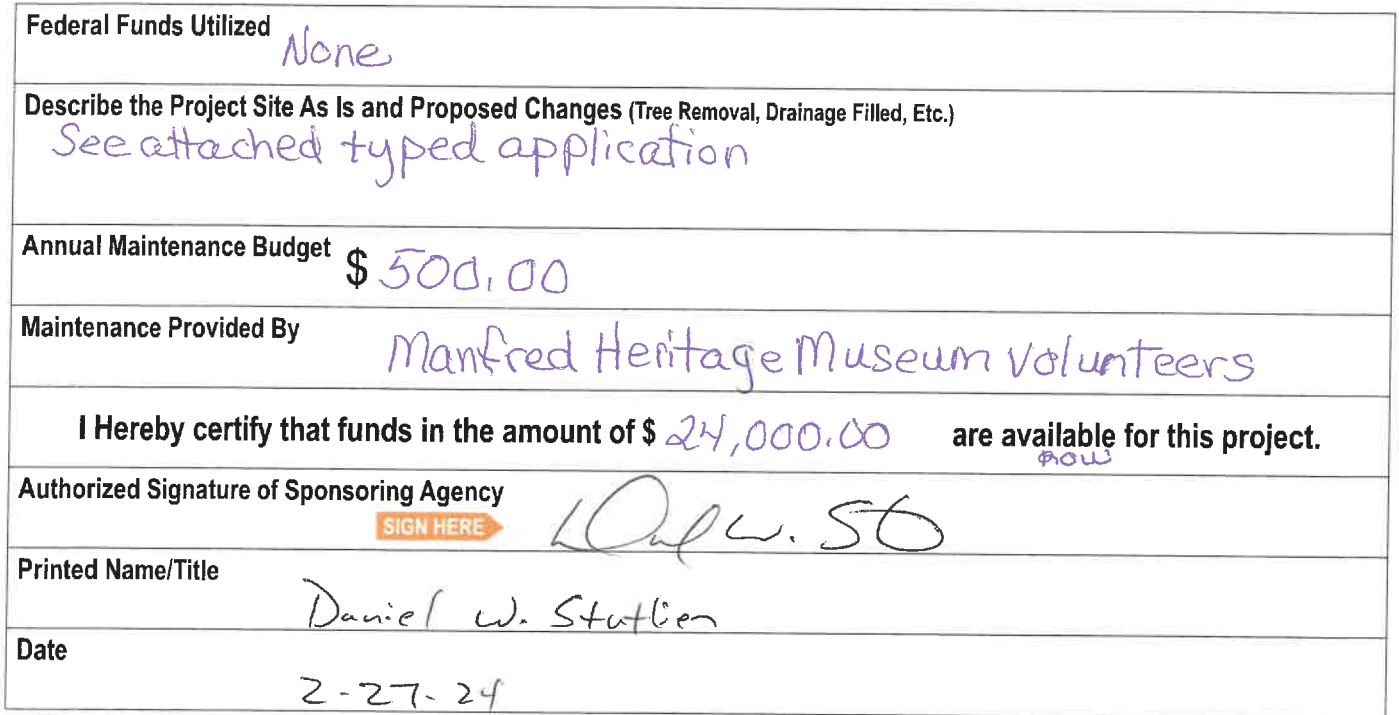 Federal Funds Utilized None
Describe the Project Site As Is and Proposed Changes (Tree Removal, Drainage Filled, Etc.)
See attached typed application
Annual Maintenance Budget $ 500.00
Maintenance Provided By Manfred Heritage Museum volunteers
I Hereby certify that funds in the amount of $ 24,000.00 are available for this project.
now
Authorized Signature of Sponsoring Agency
SIGN HERE
Printed Name/Title
Daniel W.
Date
2-27-24